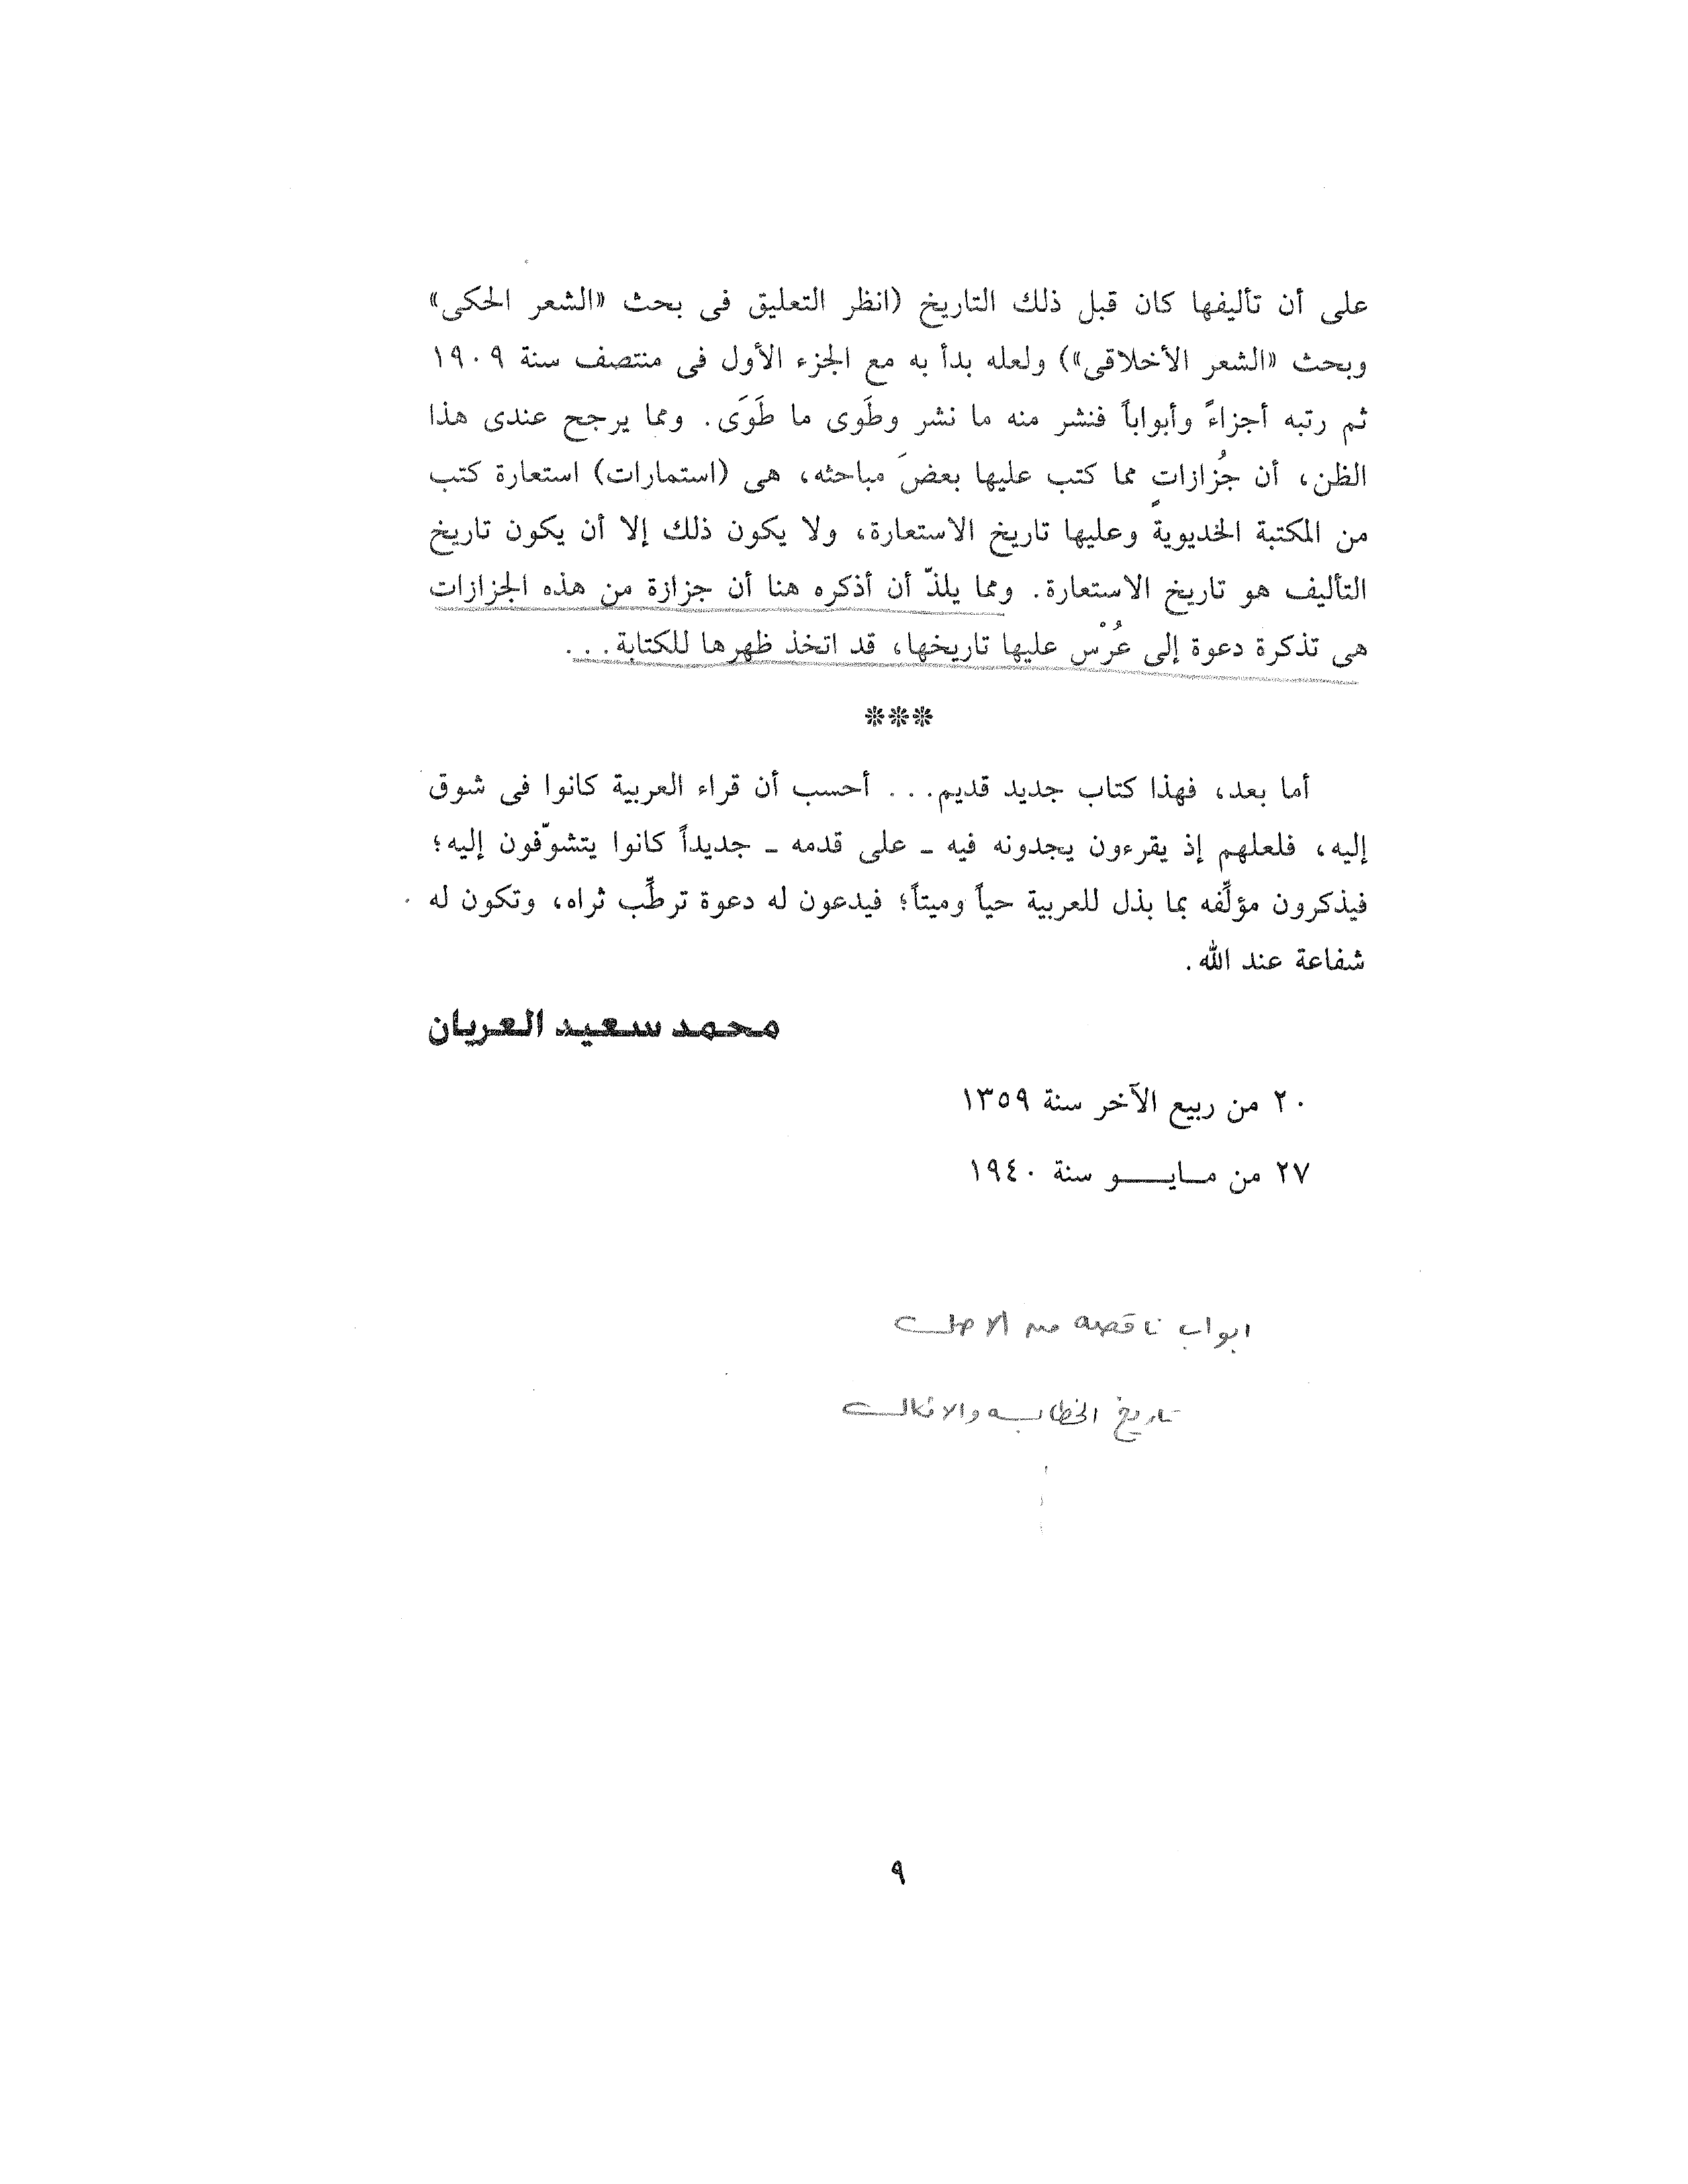 على أن تأليفها كان قبل ذلك التاريخ (انظر التعليق فى بحث «الشعر الحكى»
وبحث «الشعر الأخلاقى») ولعله بدأ به مع الجزء الأول فى منتصف سنة ١٩٠٩
ثم رتبه أجزاءً وأبواباً فنشر منه ما نشر وطَوى ما طَوَى. ومما يرجح عندى هذا
الظن، أن جُزازاتٍ مما كتب عليها بعضَ مباحثه، هى (استمارات) استعارة كتب
من المكتبة الخديوية وعليها تاريخ الاستعارة، ولا يكون ذلك إلا أن يكون تاريخ
التأليف هو تاريخ الاستعارة. ومما يلذّ أن أذكره هنا أن جزازة من هذه الجزازات
هى تذكرة دعوة إلى عُرْس عليها تاريخها، قد اتخذ ظهرها للكتابة...
***
أما بعد، فهذا كتاب جديد قديم... أحسب أن قراء العربية كانوا فى شوق
إليه، فلعلهم إذ يقرءون يجدونه فيه ـ على قدمه ـ جديداً كانوا يتشوّفون إليه؛
فيذكرون مؤلِّفه بما بذل للعربية حياً وميتاً؛ فيدعون له دعوة ترطِّب ثراه، وتكون له
شفاعة عند الله.
محمد سعيد العريان
٢٠ من ربيع الآخر سنة ١٣٥٩
٢٧ من مايـــو سنة ١٩٤٠
ابواب ناقصه من الاصل
تاريخ الخطابه والامثال
٩